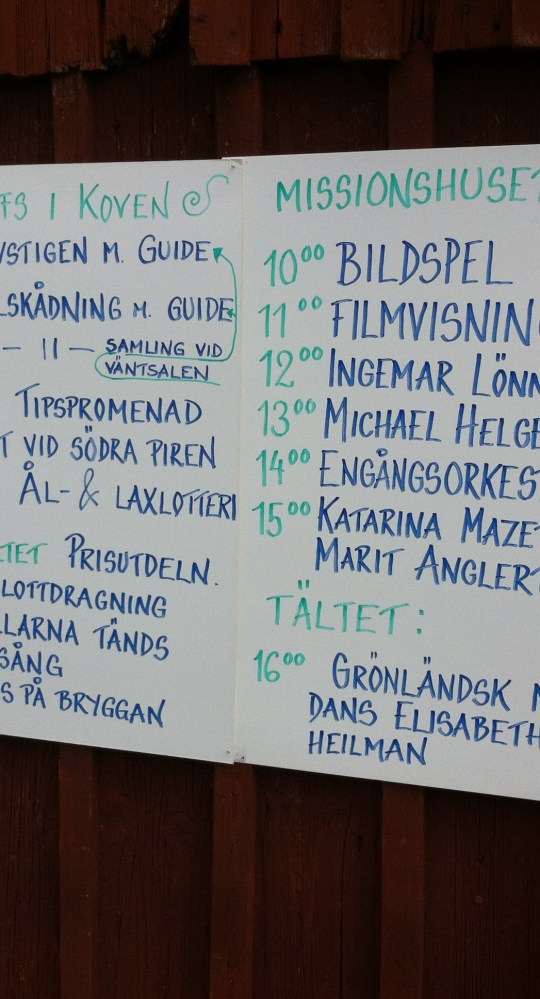 FS I KOVEN
STIGEN M. GUIDE
LSKÅDNING M. GUIDE
— 11 — SAMLING VID
VÄNTSALEN
TIPSPROMENAD
T VID SÖDRA PIREN
ÅL- & LAXLOTTERI
TET PRISUTDELN.
LOTTDRAGNING
LARNA TÄNDS
SÅNG
S PÅ BRYGGAN
MISSIONSHUSET
10⁰⁰ BILDSPEL
11⁰⁰ FILMVISNIN
12⁰⁰ INGEMAR LÖNN
13⁰⁰ MICHAEL HELGE
14⁰⁰ ENGÅNGSORKES
15⁰⁰ KATARINA MAZE
MARIT ANGLER
TÄLTET:
16⁰⁰ GRÖNLÄNDSK
DANS ELISABETH
HEILMAN